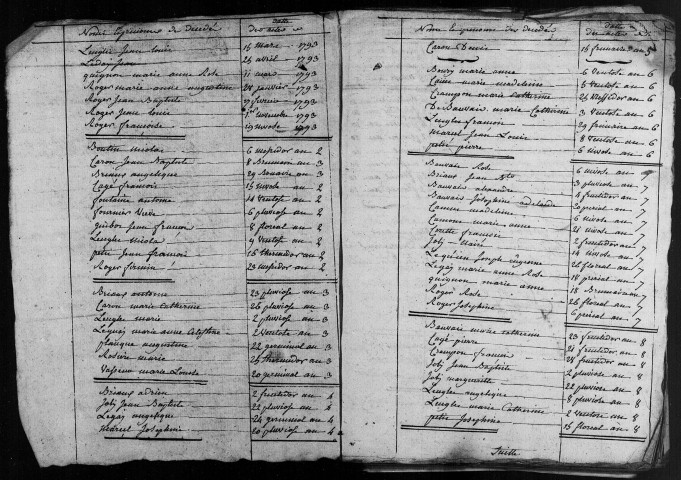 Noms & prenoms de decedé
Date des actes
Lenglie Jean Louis 16 mars 1793
Leday Jean 25 avril 1793
quignon marie anne Rose 11 mars 1793
Roger marie anne augustine 24 janvier 1793
Roger Jean Baptiste 17 fevrier 1793
Roger Jean Louis 1793
Roger francoise 1793
Boutin nicolas 6 messidor an 2
Caron Jean Baptiste 8 Brumaire an 3
Briaux angelique 29 an 3
Cagé francois 15 nivose an 2
fontaine antoine 14 ventose an 2
fournier 6 pluviose an 2
guibon Jean francois 8 floreal an 2
Lenglie nicolas 9 ventose an 2
petit Jean francois 16 thermidor an 2
Roger firmin 23 messidor an 2
Briaux antoine 23 pluviose an 3
Caron marie Catherine 26 pluviose an 3
Lenglie marie 2 pluviose an 3
Lequai marie anne Celestine 2 Ventose an 3
planque augustine 22 germinal an 3
Rosiere marie 24 thermidor an 3
Vasseur marie Louise 20 germinal an 3
Briaux adrien 2 fructidor an 4
Joly Jean Baptiste 22 pluviose an 4
Legay angelique 24 germinal an 4
marcel Josephine 20 pluviose an 4
Noms & prenoms des decedés
Date des actes
Caron Denise 16 frimaire an 5
Boury marie anne 6 Ventose an 6
Caron marie madeleine 3 ventose an 6
Crampon marie Catherine 25 Messidor an 6
De Beauvais marie Catherine 3 Ventose an 6
Lenglie francois 29 frimaire an 6
marcel Jean Louis 8 Ventose an 6
petit pierre 6 nivose an 6
Bauvais Rose 6 nivose an 7
Briaux Jean Bte 3 pluviose an 7
Bauvais alexandre 4 fructidor an 7
Bauvais Josephine adelaide 20 an 7
Camus madeleine 6 nivose an 7
Camons marie anne 21 nivose an 7
Corette francois 2 fructidor an 7
Joly 14 nivose an 7
Lequien Joseph Eugenne 26 floreal an 7
Legay marie anne Rose 18 prairial an 7
quignon marie anne 18 Brumaire an 7
Roger Rose 26 floreal an 7
Roger Josephine 6 an 7
Bauvais marie Catherine 23 fructidor an 8
Cagé pierre 21 fructidor an 8
Crampon francois 24 fructidor an 8
Joly Jean Baptiste 2 pluviose an 8
Joly marguerite 22 pluviose an 8
Lenglie angelique 8 pluviose an 8
Lenglie marie Catherine 2 Ventose an 8
petit Josephine 18 floreal an 8
Suitte